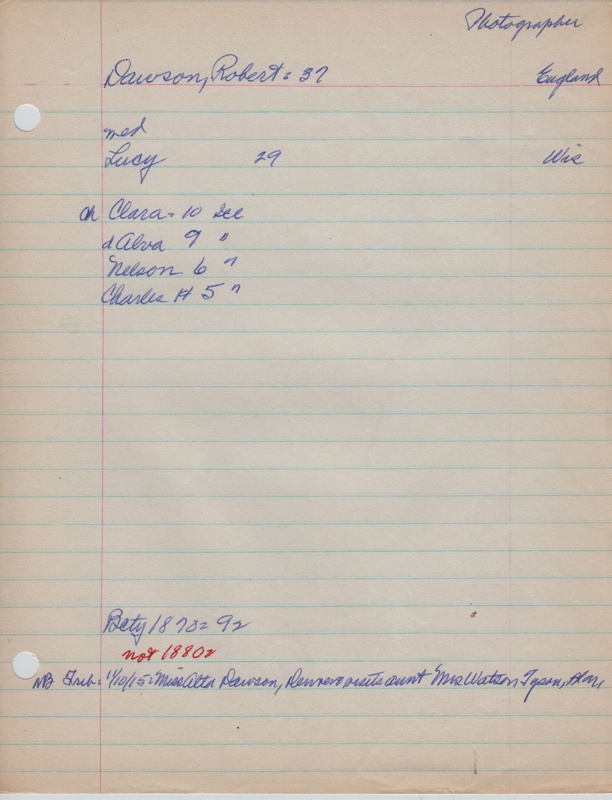 Photographer
Dawson, Robert = 37 England
med
Lucy 29 Wis
ch Clara = 10 Ill
d Alva 9 "
Nelson 6 "
Charles H 5 "
1870 = 92
not 1880
NB Trib. 1/10/15 = Miss Alta Dawson, Denver visits aunt Mrs Watson Tyson,